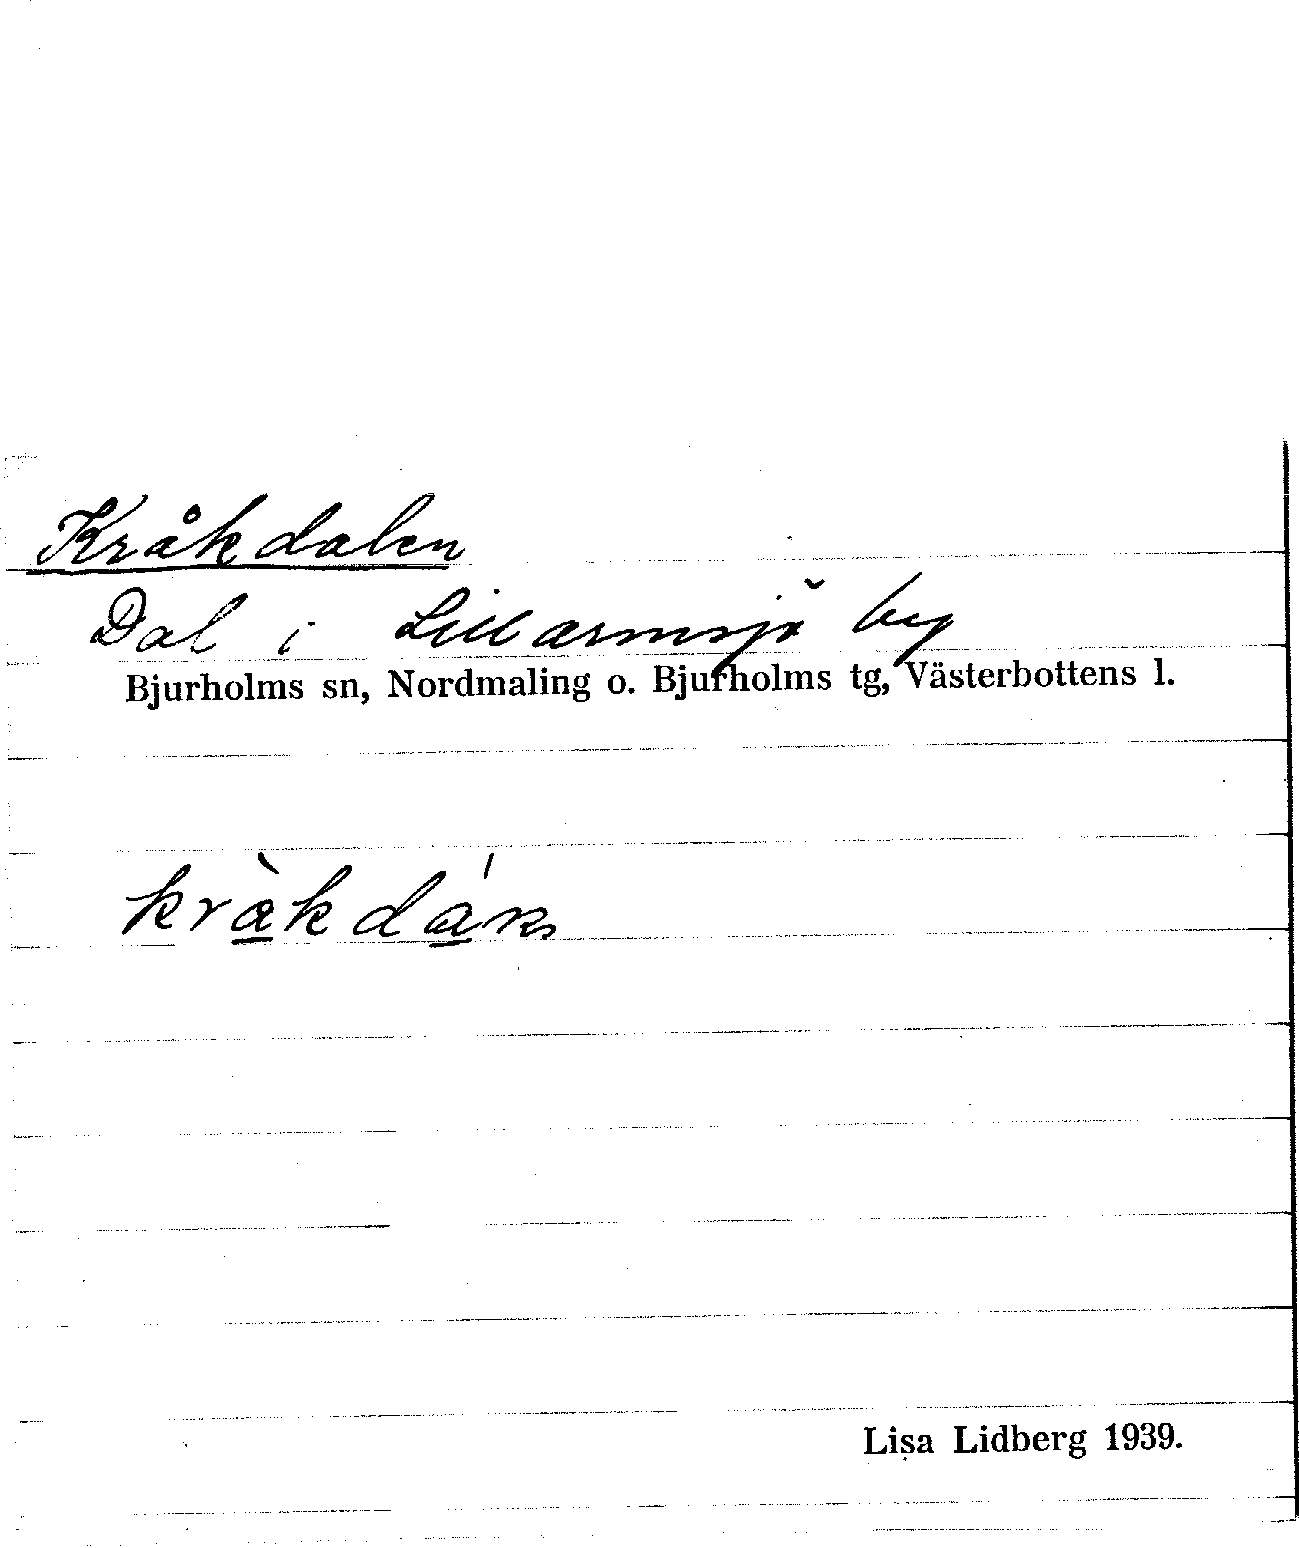 Kråkdalen
Dal i Lillarmsjö by
Bjurholms sn, Nordmaling o. Bjurholms tg, Västerbottens l.
Lisa Lidberg 1939.